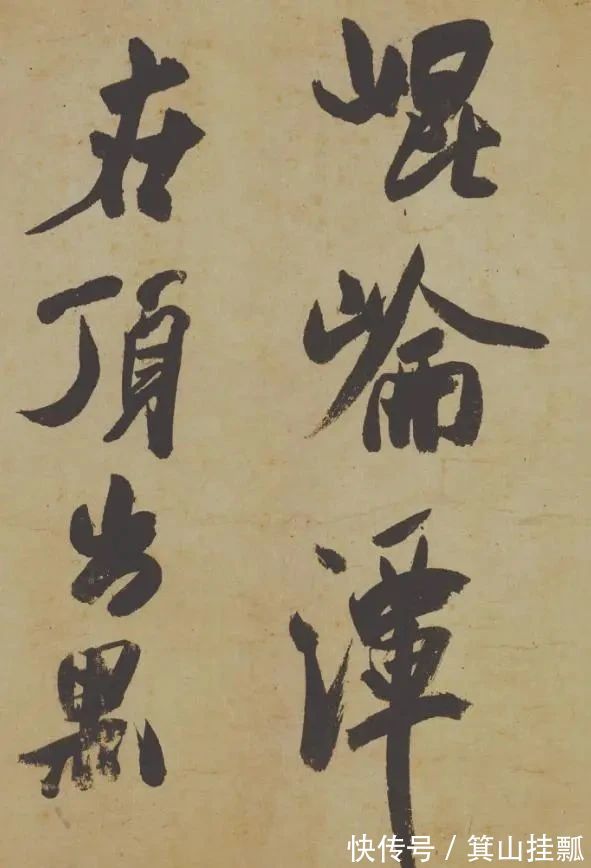 崐崘潭
在頂出黑
快传号 / 箕山挂瓢